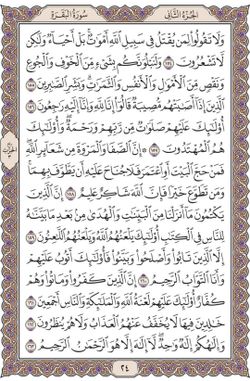 الجزء الثاني
سورة البقرة
ولا تقولوا لمن يقتل في سبيل الله أموت بل أحياء ولكن
لا تشعرون ١٥٤ ولنبلونكم بشيء من الخوف والجوع
ونقص من الأمول والأنفس والثمرت وبشر الصبرين ١٥٥
الذين إذا أصبتهم مصيبة قالوا إنا لله وإنا إليه رجعون ١٥٦
أولئك عليهم صلوت من ربهم ورحمة وأولئك
هم المهتدون ١٥٧ إن الصفا والمروة من شعائر الله
فمن حج البيت أو اعتمر فلا جناح عليه أن يطوف بهما
ومن تطوع خيرا فإن الله شاكر عليم ١٥٨ إن الذين
يكتمون ما أنزلنا من البينت والهدى من بعد ما بينه
للناس في الكتب أولئك يلعنهم الله ويلعنهم اللعنون ١٥٩
إلا الذين تابوا وأصلحوا وبينوا فأولئك أتوب عليهم
وأنا التواب الرحيم ١٦٠ إن الذين كفروا وماتوا وهم
كفار أولئك عليهم لعنة الله والملئكة والناس أجمعين ١٦١
خلدين فيها لا يخفف عنهم العذاب ولا هم ينظرون ١٦٢
وإلهكم إله وحد لا إله إلا هو الرحمن الرحيم ١٦٣
٢٤